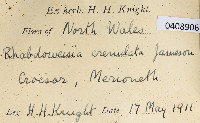 Ex herb. H. H. Knight.
0408906
Flora of North Wales
Rhabdoweisia crenulata Jameson
Croesor, Merioneth
Leg. H. H. Knight Date 17 May 1911